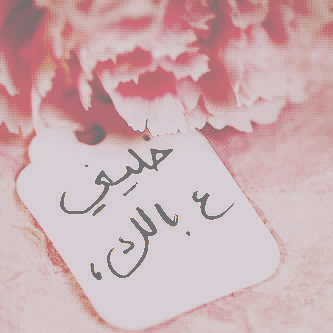 خليني
ع بالك،